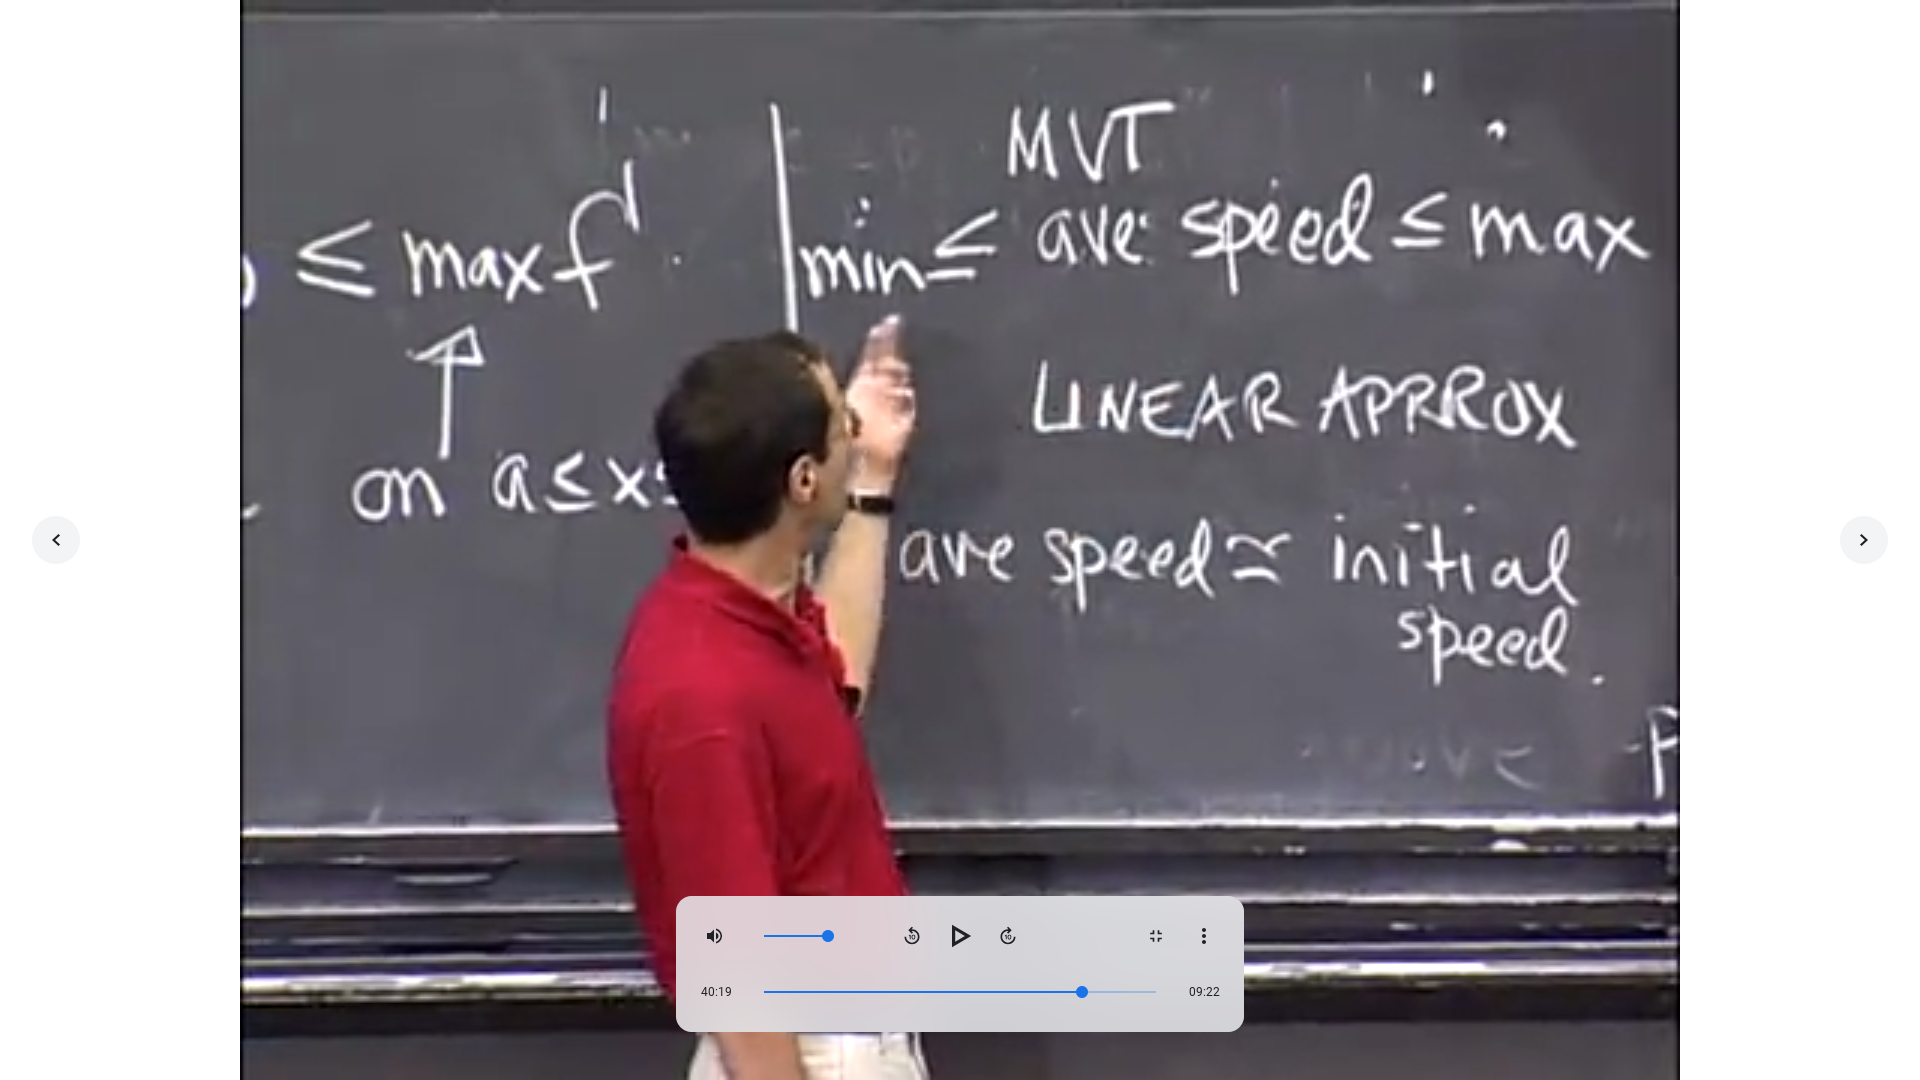 ≤ max f'
on a ≤ x ≤
MVT
min ≤ ave speed ≤ max
LINEAR APPROX
ave speed ≃ initial
speed.
40:19
09:22